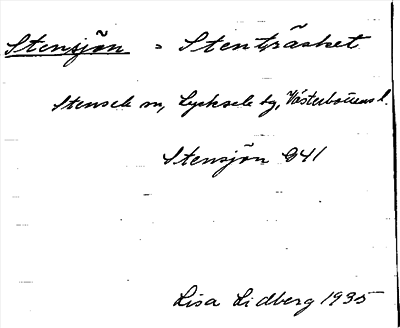 Stensjön = Stenträsket
Stensele sn, Lycksele tg, Västerbottens l.
Stensjön 841
Lisa Lidberg 1935